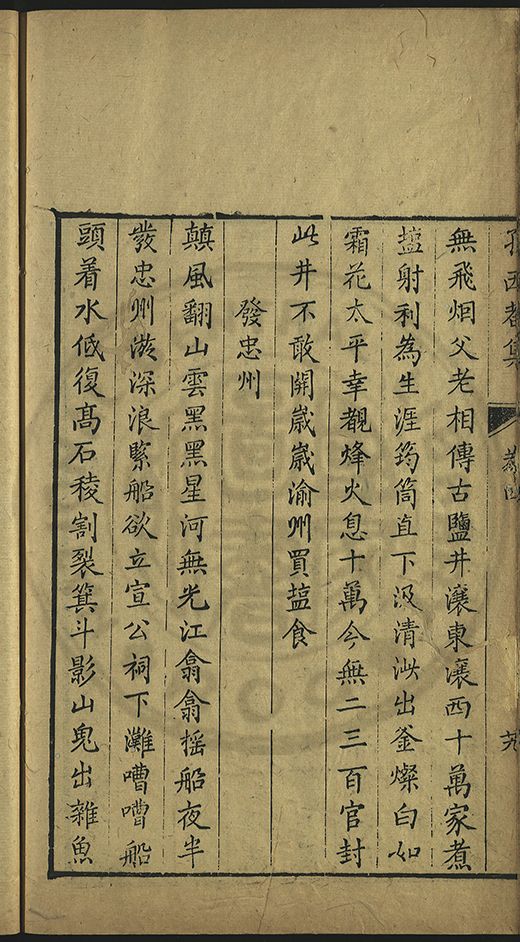 西
卷四
無飛烟父老相傳古鹽井瀼東瀼西十萬家煮
塩射利為生涯筠筒直下汲清泚出釜燦白如
霜花太平幸覩烽火息十萬今無二三百官封
此井不敢開嵗嵗渝州買塩食
發忠州
顛風翻山雲黑黑星河無光江翕翕搖船夜半
發忠州漩深浪緊船欲立宣公祠下灘嘈嘈船
頭着水低復髙石稜割裂箕斗影山鬼出雜魚